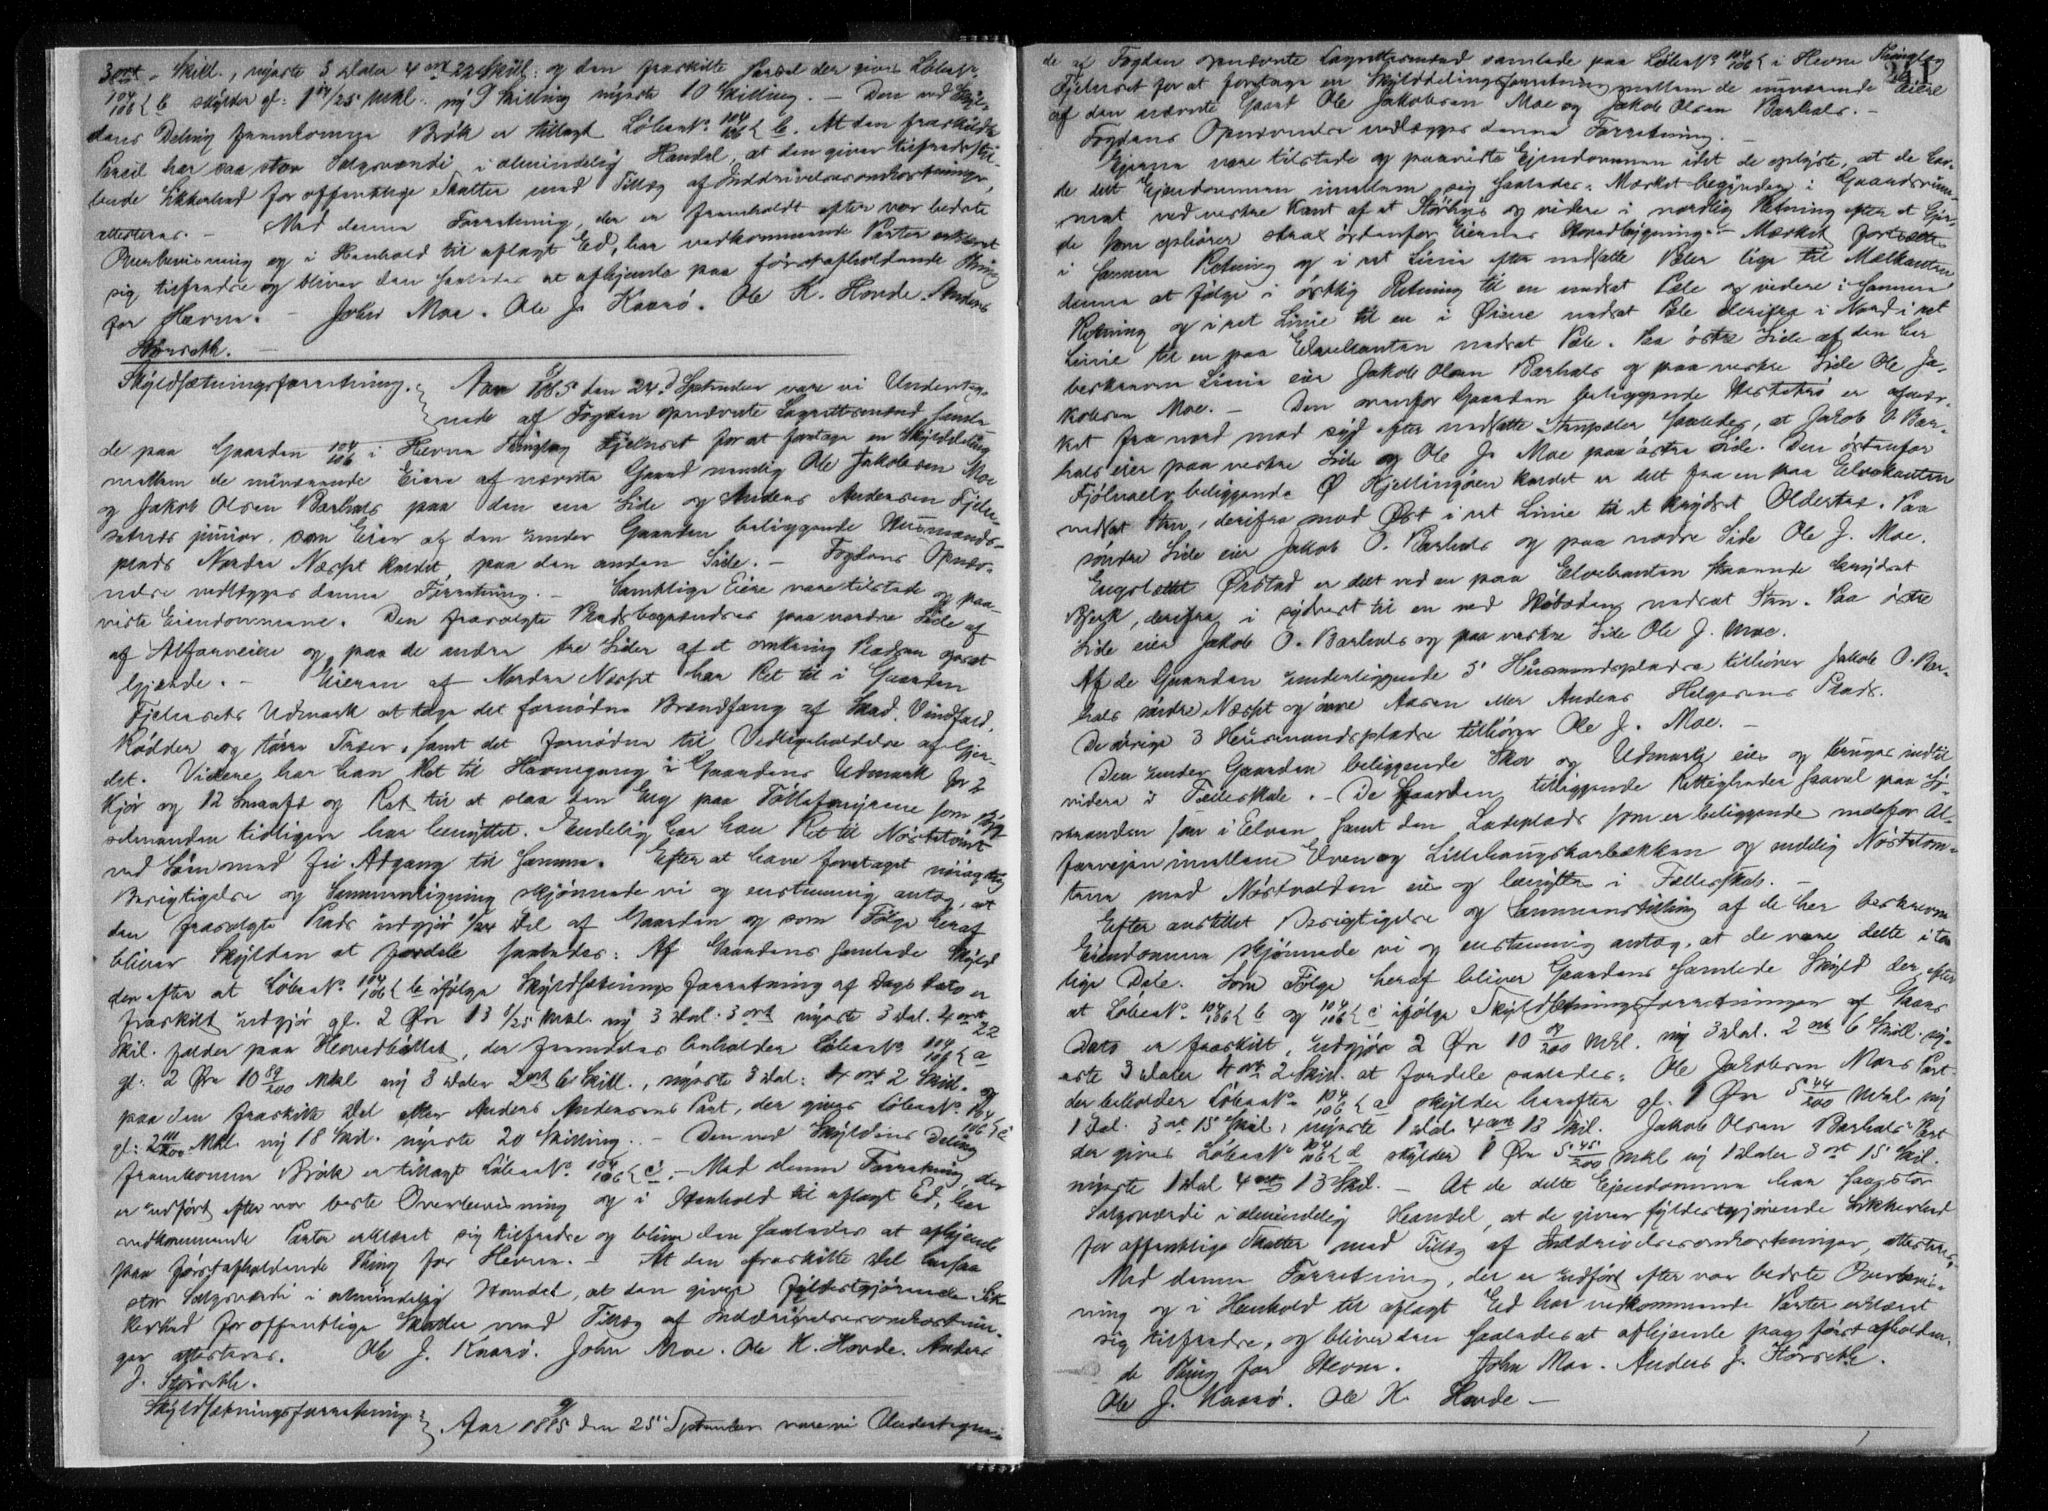 3 ort - Skill., nyeste 3 Daler 4 ort 22 Skill: og den fraskilte Parsel der gives Løbe No
104/106 b skylder gl: 1 Mkl. ny 9 Skilling nyeste 10 Skilling. - Den ved Skyl-
dens Deling fremkomne Brøk er tillagt Løbe No 104/106 b. At den fraskildte
Parsel har saa stor Salgsværdi i almindelig Handel, at den giver tilfredsstil-
lende Sikkerhed for offentlige Skatter med Tillæg af Inddrivelsesomkostninger,
attesteres. - Med denne Forretning, der er fremholdt efter vor bedste
Overbevisning og i Henhold til aflagt Ed, har vedkommende Parter erklæret
sig tilfredse og bliver den saaledes at afhjemle paa førstafholdende Thing
for Hevne. - John Moe. Ole J. Kaarø. Ole K. Hovde. Anders
Størseth.
Skyldsætningsforretning. Aar 1885 den 24d September vare vi Underteg-
nede af Fogden opnævnte Lagrettesmænd samle-
de paa Gaarden 104/106 i Hevne Thinglag Fjelnset for at foretage en Skylddeling
mellem de nuværende Eiere af nævnte Gaard nemlig Ole Jakobsen Moe
og Jakob Olsen Barhals paa den ene Side og Anders Andersen Fjeln-
sethnes junior, som Eier af den under Gaarden beliggende Husmands-
plads Nordre Næsset kaldet, paa den anden Side. - Fogdens Opnæv-
nelse vedlegges denne Forretning. - Samtlige Eiere vare tilstede og paa-
viste Eiendommene. Den frasolgte Plads begrændses paa nordre Side af
af Alfarveien og paa de andre tre Sider af et omkring Pladsen opsat
Gjærde. - Eieren af Nordre Næsset har Ret til i Gaarden
Fjelnsets Udmark at tage det fornødne Brændfang af Lad, Vindfald,
Rødder og tørre Træer, samt det fornødne til Vedligeholdelse af Gjer-
det. Videre har han Ret til Havnegang i Gaardens Udmark for 2
Kjør og 12 Smaafæ og Ret til at slaa den Eng paa Tollefsmyrene som
ved Søen med fri Adgang til samme. Efter at have foretaget nøiagtig
Besigtigelse og Sammenligning skjønnede vi og enstemmig antog, at
den frasolgte Plads udgjør Del af Gaarden og som Følge heraf
bliver Skylden at fordele saaledes: Af Gaardens samlede Skyld
den efter at Løbe No 104/106 b ifølge Skyldsætnings forretning af Dags Dato er
fraskilt udgjør gl. 2 Øre 13 Mkl. ny 3 Dal. 3 ort nyeste 3 Dal. 4 ort 22
Skil. falder paa Hovedbøllet, der fremdeles beholder Løbe No 104/106 a
gl: 2 Øre 10 89/200 Mkl ny 3 Daler 2 ort 6 Skill., nyeste 3 Dal: 4 ort 2 Skil. og
paa den fraskilte Del eller Anders Andersens Part, der gives Løbe No 104/106 c
gl: 2 Mkl. ny 18 Skil. nyeste 20 Skilling. - Den ved Skyldens Deling
fremkomne Brøk er tillagt Løbe No 104/106 c. - Med denne Forretning, der
er udført efter vor beste Overbevisning og i Henhold til aflagt Ed, har
vedkommende Parter erklæret sig tilfredse og bliver den saaledes at afhjemle
paa førstafholdende Thing for Hevne. - At den fraskilte Del har saa
stor Salgsværdi i almindelig Handel, at den giver fyldestgjørende Sik-
kerhed for offentlige Skatter med Tillæg af Inddrivelsesomkostnin-
ger attesteres. Ole J. Kaarø. John Moe. Ole K. Hovde. Anders
J. Størseth.
Skyldsætningsforretning. Aar 1885 den 25 September vare vi Undertegne-
de af Fogden opnævnte Lagrettesmænd samlede paa Løbe No 104/106 i Hevne Thinglag
Fjelnset for at foretage en Skylddelingsforretning mellem de nuværende Eiere
af den nævnte Gaard Ole Jakobsen Moe og Jakob Olsen Barhals. -
Fogdens Opnævnelse vedlægges denne Forretning. -
Eierne vare tilstede og paaviste Ejendommen idet de oplyste, at de hav-
de delt Ejendommen imellem sig saaledes: Mærket begynder i Gaardsrum-
met ved vestre Kant af et Størhus og videre i nordlig Retning efter et Gjer-
de som ophører strax østenfor Eiernes Hovedbygninger. Mærket fortsætter
i samme Retning og i ret Linie efter nedsatte Peler lige til Melkanten
denne at følge i østlig Retning til en nedsat Pæle og videre i samme
Retning og i ret Linie til en i Øiene nedsat Pele derifra i Nord i ret
Linie til en paa Elvekanten nedsat Pæle. Paa østre Side af den her
beskrevne Linie eier Jakob Olsen Barhals og paa vestre Side Ole Ja-
kobsen Moe. - Den ovenfor Gaarden beliggende er afmær-
ket fra nord mod syd efter nedsatte Stenpæler saaledes, at Jakob O. Bar-
hals eier paa vestre Side og Ole J. Moe paa østre Side. Den østenfor
Fjølnaelv beliggende Ø Kjellingøen kaldet er delt fra en paa Elvekanten
nedsat Sten, derifra mod Øst i ret Linie til et krydset Oldertræ. Paa
søndre Side eier Jakob O. Barhals og paa nordre Side Ole J. Moe.
Engslettet Ørstad er delt ved en paa Elvekanten staaende krydset
Bjerk, derifra i sydvest til en ved nedsat Sten. Paa østre
Side eier Jakob O. Barhals og paa vestre Side Ole J. Moe.
Af de Gaarden underliggende 5 Husmandspladse tilhører Jakob O. Bar-
hals søndre Næsset og øvre Aasen eller Anders Helgesens Plads.
De øvrige 3 Husmandspladse tilhører Ole J. Moe. -
Den under Gaarden beliggende Skov og Udmark eies og bruges indtil
videre i Fælleskab. - De Gaarden tilliggende Rettigheder saavel paa Sø-
stranden som i Elven samt den Ladeplads som er beliggende nedefor Al-
farvejen imellem Elven og Lillehaugskarbækken og endelig Nøsttom-
terne med Nøstvolden eies og benyttes i Fællesskab. -
Efter anstillet Besigtigelse og Sammenstilling af de her beskrevne
Eiendomme skjønnede vi og enstemmig antog, at de vare delte i to
lige Dele. Som Følge heraf bliver Gaardens samlede Skyld der, efter
at Løbe No 104/106 b og 104/106 c ifølge Skyldsætningsforretninger af Gaars
Dato er fraskilt, udgjør 2 Øre 10 89/200 Mkl. ny 3 Dal. 2 ort 6 Skill. ny-
este 3 Daler 4 ort 2 Skil. at fordele saaledes: Ole Jakobsen Moes Part
der beholder Løbe No 104/106 a skylder herefter gl. 1 Øre 5 44/200 Mkl. ny
1 Dal. 3 ort 15 Skil., nyeste 1 Dal. 4 ort 13 Skil. Jakob Olsen Barhals Part
der gives Løbe No 104/106 d skylder 1 Øre 5 45/200 Mkl ny 1 Daler 3 ort 15 Skil.
nyeste 1 Dal 4 ort 13 Skil. - At de delte Ejendomme har saa stor
Salgsværdi i almindelig Handel, at de giver fyldestgjørende Sikkerhed
for offentlige Skatter med Tillæg af Inddrivelsesomkostninger, attesteres,
Med denne Forretning, der er udført efter vor bedste Overbevis-
ning og i Henhold til aflagt Eed har vedkommende Parter erklæret
sig tilfredse, og bliver den saaledes at afhjemle paa først afholden-
de Thing for Hevne. John Moe. Anders J. Størseth.
Ole J. Kaarø. Ole K. Hovde -